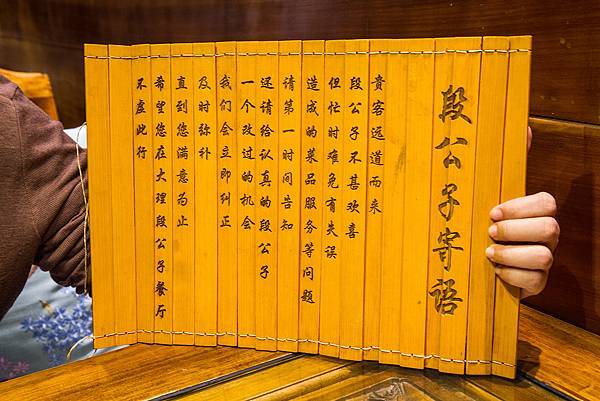 段公子寄语
贵客远道而来
段公子不甚欢喜
但忙时难免有失误
造成的菜品服务等问题
请第一时间告知
还请给认真的段公子
一个改过的机会
我们会立即纠正
及时弥补
直到您满意为止
希望您在大理段公子餐厅
不虚此行